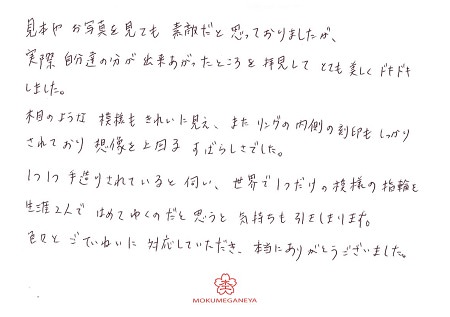 見本や お写真を見ても 素敵だと思っておりましたが、
実際 自分達の分が 出来あがったところを拝見して とても美しく ドキドキ
しました。
木目のような 模様も きれいに見え、また リングの内側の刻印も しっかり
されており 想像を上回る すばらしさでした。
1つ1つ 手造りされていると 伺い、世界で1つだけの模様の指輪を
生涯2人で はめてゆくのだと思うと 気持ちも 引きしまります。
色々と ごていねいに 対応していただき、本当にありがとうございました。
MOKUMEGANEYA